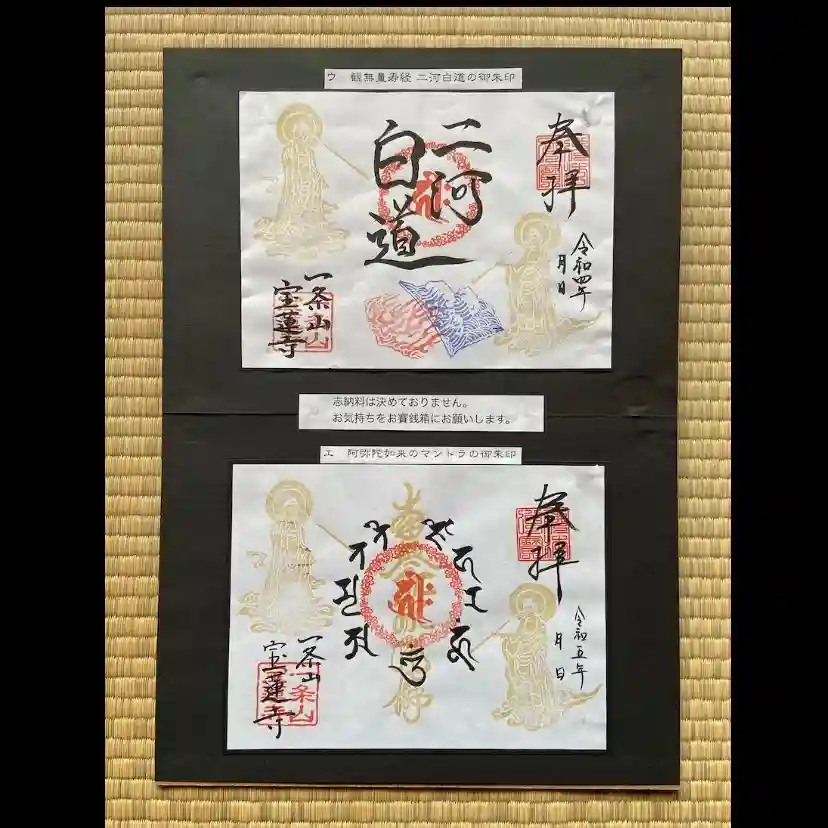 ウ 観無量寿経 二河白道の御朱印
奉拝
令和四年
月 日
二河
白道
一条山
宝蓮寺
志納料は決めておりません。
お気持ちをお賽銭箱にお願いします。
エ 阿弥陀如来のマントラの御朱印
奉拝
令和五年
月 日
一条山
宝蓮寺